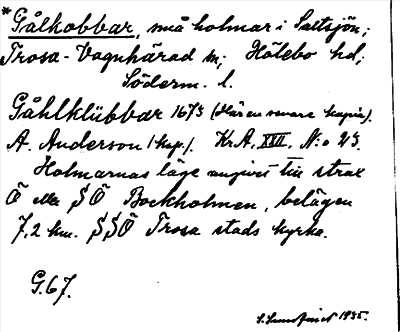 *Gålkobbar, små holmar i Saltsjön;
Trosa-Vagnhärad sn; Hölebo hd;
Söderm. l.
Gåhlklübbar 1673 (Här en senare kopia).
A. Anderson (kop.). KrA, XVII, N:o 23.
Holmarnas läge angivet till strax
Ö eller SÖ Bockholmen, belägen
7,2 km. SSÖ Trosa stads kyrka.
G.67.
1935.